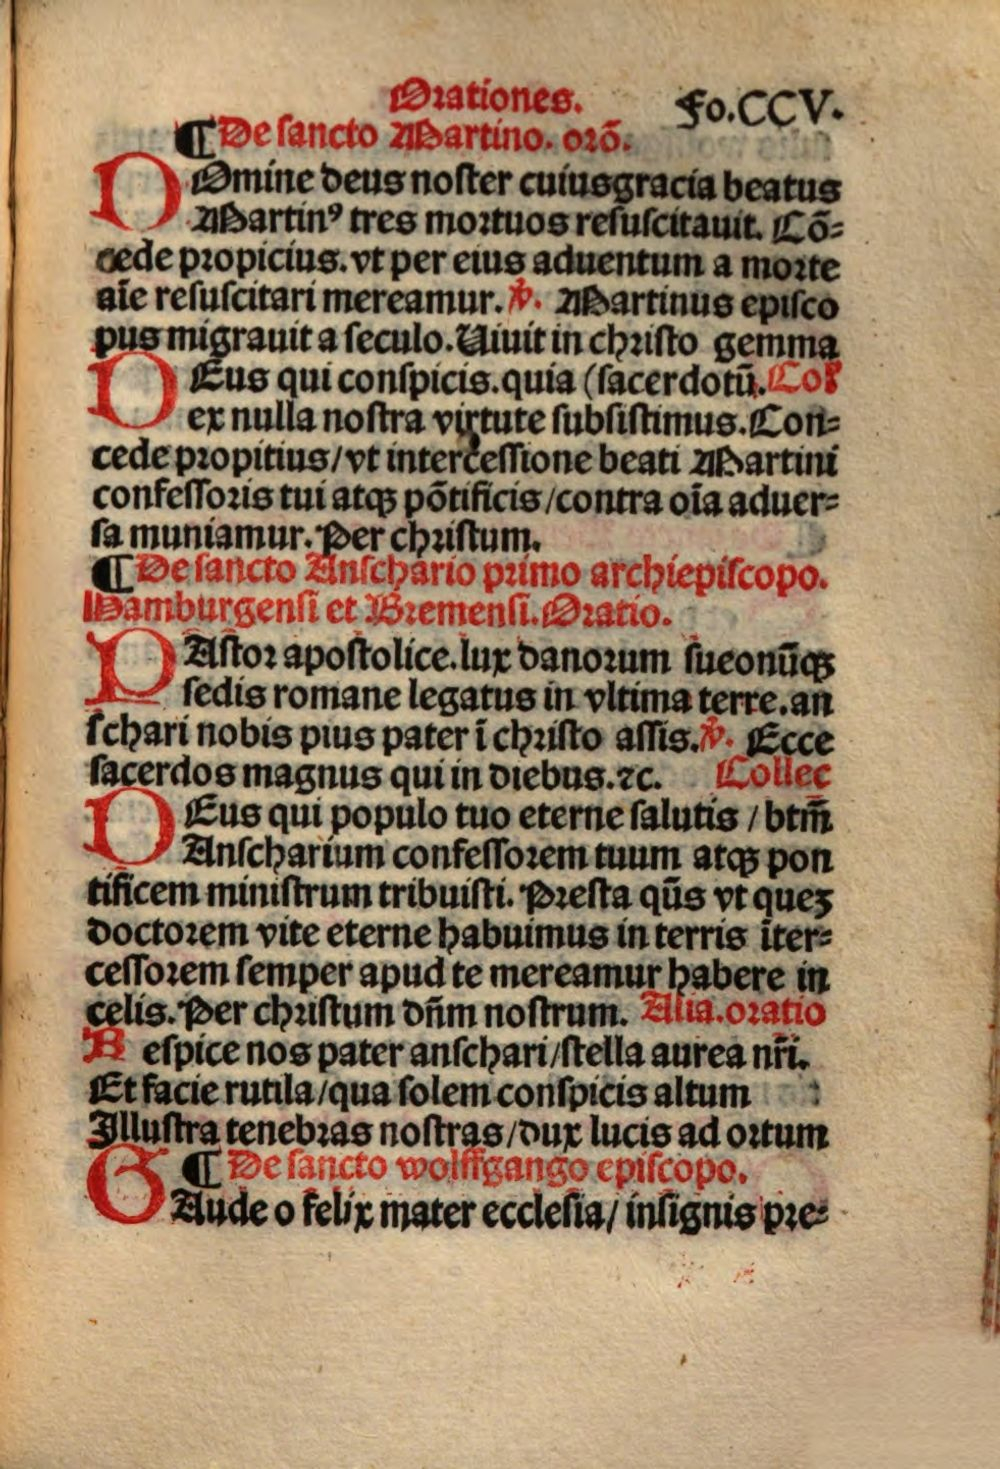 Orationes.
Fo.CCV.
¶ De sancto Martino. orõ.
DOmine deus noster cuiusgracia beatus
Martinꝰ tres mortuos resuscitauit. Cõ-
cede propicius. vt per eius aduentum a morte
aīe resuscitari mereamur. ℣. Martinus episco
pus migrauit a seculo. Uiuit in christo gemma
DEus qui conspicis. quia (sacerdotū. Coꝉ
ex nulla nostra virtute subsistimus. Con-
cede propitius / vt intercessione beati Martini
confessoris tui atqꝫ põtificis / contra oīa aduer-
sa muniamur. Per christum.
¶ De sancto Anschario primo archiepiscopo.
Hamburgensi et Bremensi. Oratio.
PAstor apostolice. lux danorum sueonūqꝫ
sedis romane legatus in vltima terre. an
schari nobis pius pater ī christo assis. ℣. Ecce
sacerdos magnus qui in diebus. ⁊c. Collec
DEus qui populo tuo eterne salutis / btm̄
Anscharium confessorem tuum atqꝫ pon
tificem ministrum tribuisti. Presta qūs vt queꝫ
doctorem vite eterne habuimus in terris īter-
cessorem semper apud te mereamur habere in
celis. Per christum dñm nostrum. Alia. oratio
Respice nos pater anschari / stella aurea nr̄i.
Et facie rutila / qua solem conspicis altum
Illustra tenebras nostras / dux lucis ad ortum
¶ De sancto wolffgango episcopo.
GAude o felix mater ecclesia / insignis pre-